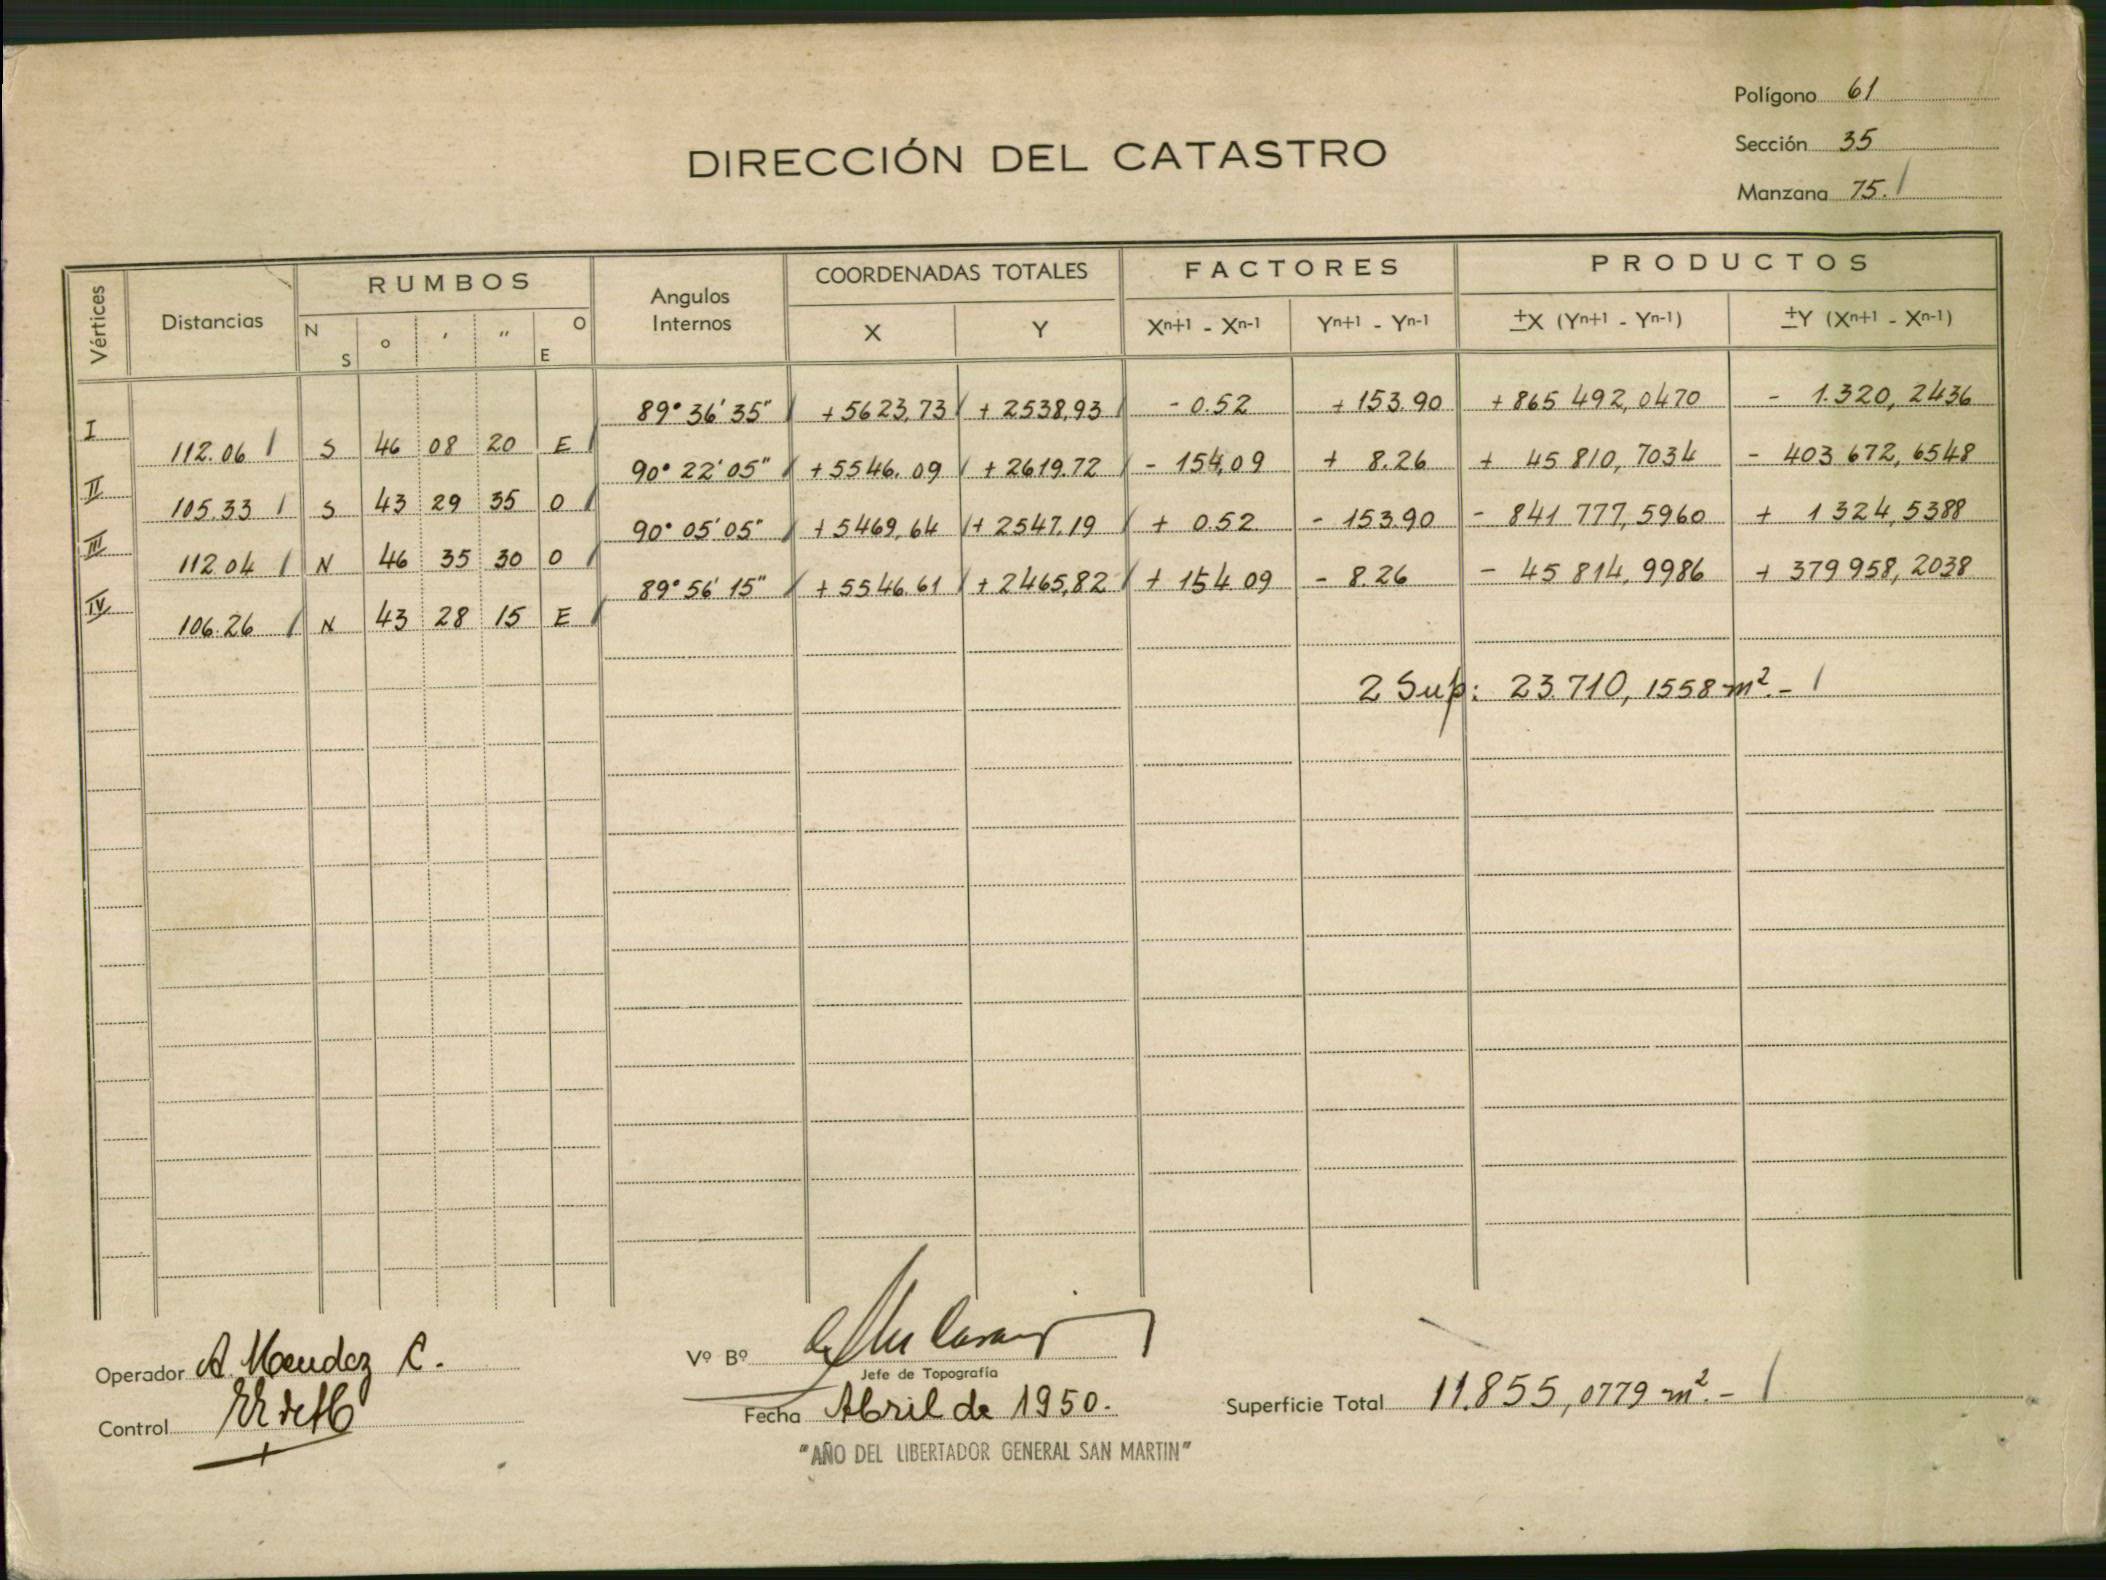 Polígono 61
Sección 35
Manzana 75.
DIRECCIÓN DEL CATASTRO
Vértices Distancias RUMBOS Angulos Internos COORDENADAS TOTALES FACTORES PRODUCTOS
N S o ' " O E X Y Xn+1 - Xn-1 Yn+1 - Yn-1 ±X (Yn+1 - Yn-1) ±Y (Xn+1 - Xn-1)
I 89° 36' 35" +5623,73 + 2538,93 - 0.52 + 153.90 + 865 492,0470 - 1.320, 2436
112.06 S 46 08 20 E
II 90° 22' 05" +5546.09 + 2619.72 - 154,09 + 8.26 + 45 810, 7034 - 403 672, 6548
105.33 S 43 29 35 O
III 90° 05' 05" +5469,64 + 2547,19 + 0.52 - 153.90 - 841 777,5960 + 1 324,5388
112.04 N 46 35 30 O
IV 89° 56' 15" +5546.61 + 2465,82 + 154.09 - 8.26 - 45 814,9986 + 379 958, 2038
106.26 N 43 28 15 E
2 Sup: 23.710, 1558 m². -
Operador A. Mendez C.
Vº Bº
Jefe de Topografía
Control
Fecha Abril de 1950.
Superficie Total 11.855,0779 m². -
"AÑO DEL LIBERTADOR GENERAL SAN MARTIN"